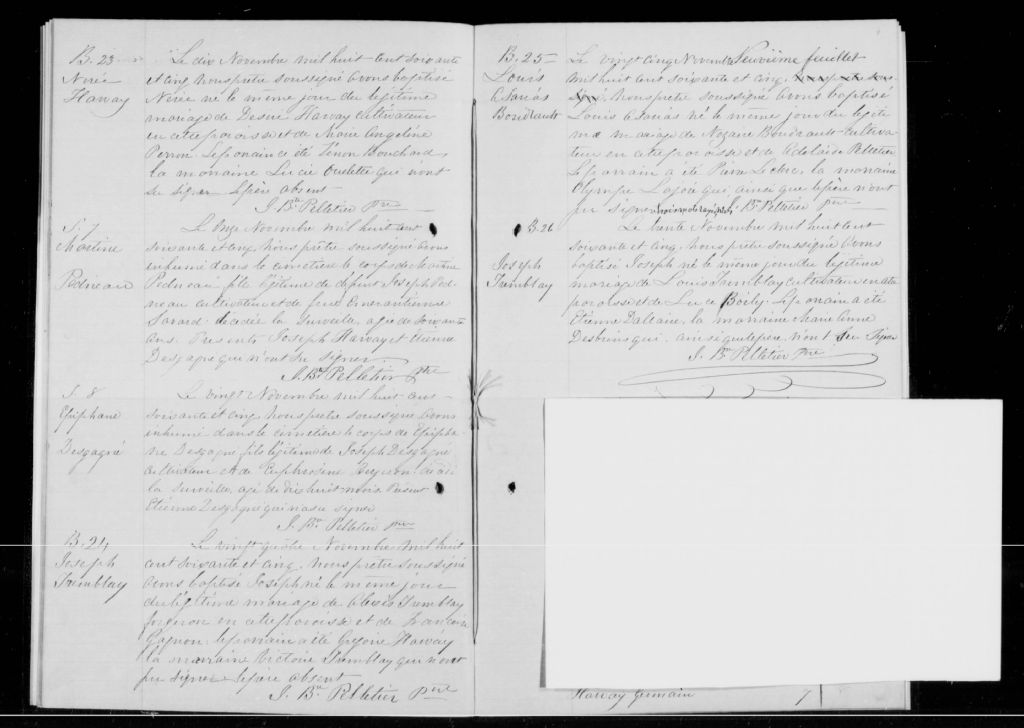 B. 23
Nérée
Harvay
Le dix Novembre mil huit cent soixante
et cinq, nous prêtre soussigné avons baptisé
Nérée né le même jour du légitime
mariage de Desiré Harvay cultivateur
en cette paroisse et de Marie Angeline
Perron. Le parrain a été Zénon Bouchard,
la marraine Lucie Ouelette qui n'ont
su signer le père absent
J. Bte Pelletier Ptre
S. 7
Martine
Pedneau
Le onze Novembre mil huit cent
soixante et cinq, nous prêtre soussigné avons
inhumé dans le cimetière le corps de Martine
Pedneau fille légitime de défunt Joseph Ped-
neau cultivateur et de feue Emerantienne
Savard décédée la surveille, agée de soixante
ans. Présents Joseph Harvay et Etienne
Desgagné qui n'ont su signer.
J. Bte Pelletier Ptre
S. 8
Epiphane
Desgagné
Le vingt Novembre mil huit cent
soixante et cinq nous prêtre soussigné avons
inhumé dans le cimetière le corps de Epipha-
ne Desgagné fils légitime de Joseph Desgagné
cultivateur et de Euphrosine Bergeron décédé
la surveille, agé de dix huit mois. Présent
Etienne Desgagné qui n'a su signer
J. Bte Pelletier Ptre
B. 24
Joseph
Tremblay
Le vingt quatre Novembre mil huit
cent soixante et cinq, nous prêtre soussigné
avons baptisé Joseph né le même jour
du légitime mariage de Alexis Tremblay
forgeron en cette paroisse et de Francoise
Gagnon. le parrain a été Grégoire Harvay
la marraine Victoire Tremblay qui n'ont
pu signer le père absent
J. Bte Pelletier Ptre
Neuvième feuillet
B. 25
Louis
Césarias
Boudrault
Le vingt cinq Novembre
mil huit cent soixante et cinq, nous prêtre sous-
signé, nous prêtre soussigné avons baptisé
Louis né le même jour du légiti-
me mariage de Nazaire Boudrault cultiva-
teur en cette paroisse et de Adelaïse Pelletier
Le parrain a été Pierre Leclerc, la marraine
Olympe Lajoie qui ainsi que le père n'ont
pu signer. trois mots rayés nuls J. Bte Pelletier Ptre
B. 26
Joseph
Tremblay
Le trente Novembre mil huit cent
soixante et cinq, nous prêtre soussigné avons
baptisé Joseph né le même jour du légitime
mariage de Louis Tremblay cultivateur en cette
paroisse et de Luce Boily. Le parrain a été
Etienne Dallaire, la marraine Marie Anne
Desbiens qui, ainsi que le père, n'ont su signer
J. Bte Pelletier Ptre
Harvay Germain 7